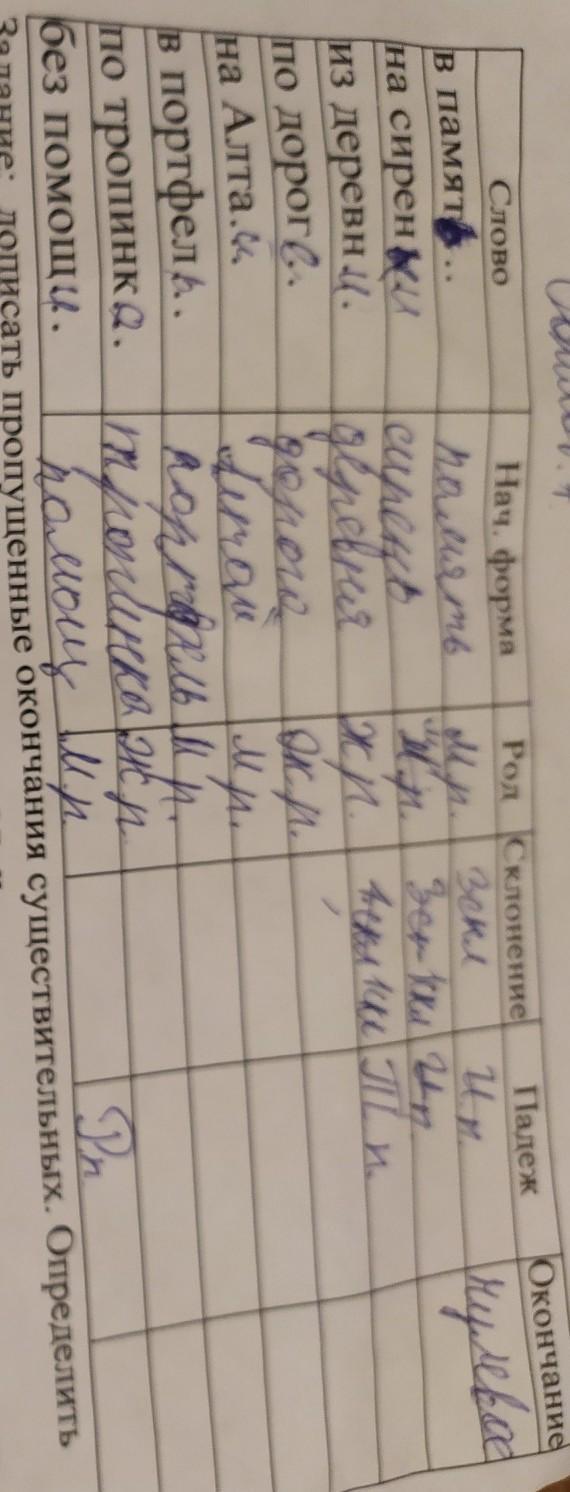 Слово Нач. форма Род Склонение Падеж Окончание
в памят.. память м.р. 3скл И.п. нулевое
на сирен сирень И.п
из деревни. деревня ж.р. Т.п.
по дороге. дорога ж.р.
на Алта.и. Алтай м.р.
в портфель. портфель м.р.
по тропинка. тропинка ж.р.
без помощи. помощ м.р. Рп
Задание: дописать пропущенные окончания существительных. Определить